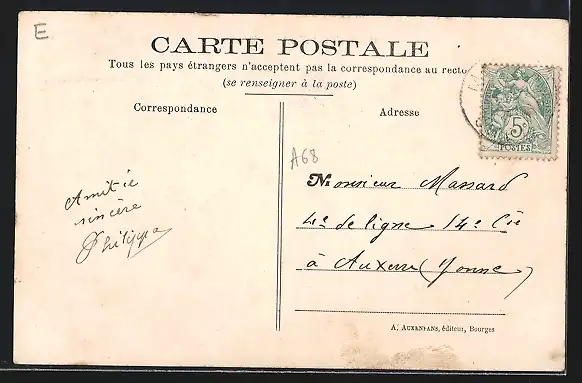 E
CARTE POSTALE
Tous les pays étrangers n'acceptent pas la correspondance au recto
(se renseigner à la poste)
Correspondance
Adresse
5c
POSTES
A68
Amitié
sincère
Philippe
Monsieur Massard
4e de ligne 14e Cie
à Auxerre (Yonne)
A. AUXENFANS, éditeur, Bourges